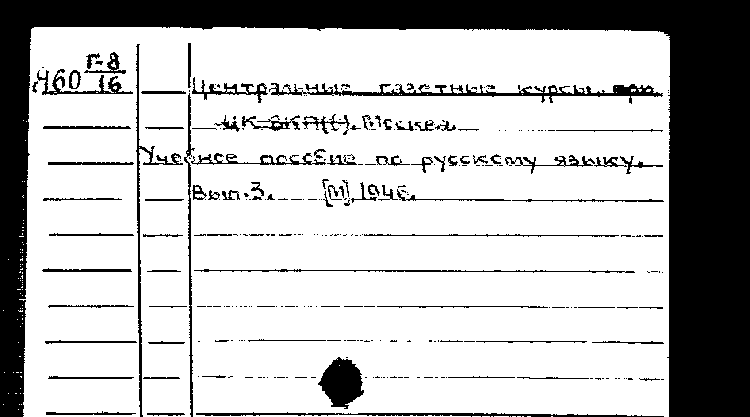 Я60 Г-8/16
Центральные газетные курсы при
ЦК ВКП(б). Москва.
Учебное пособие по русскому языку.
Вып.3. [М], 1946.